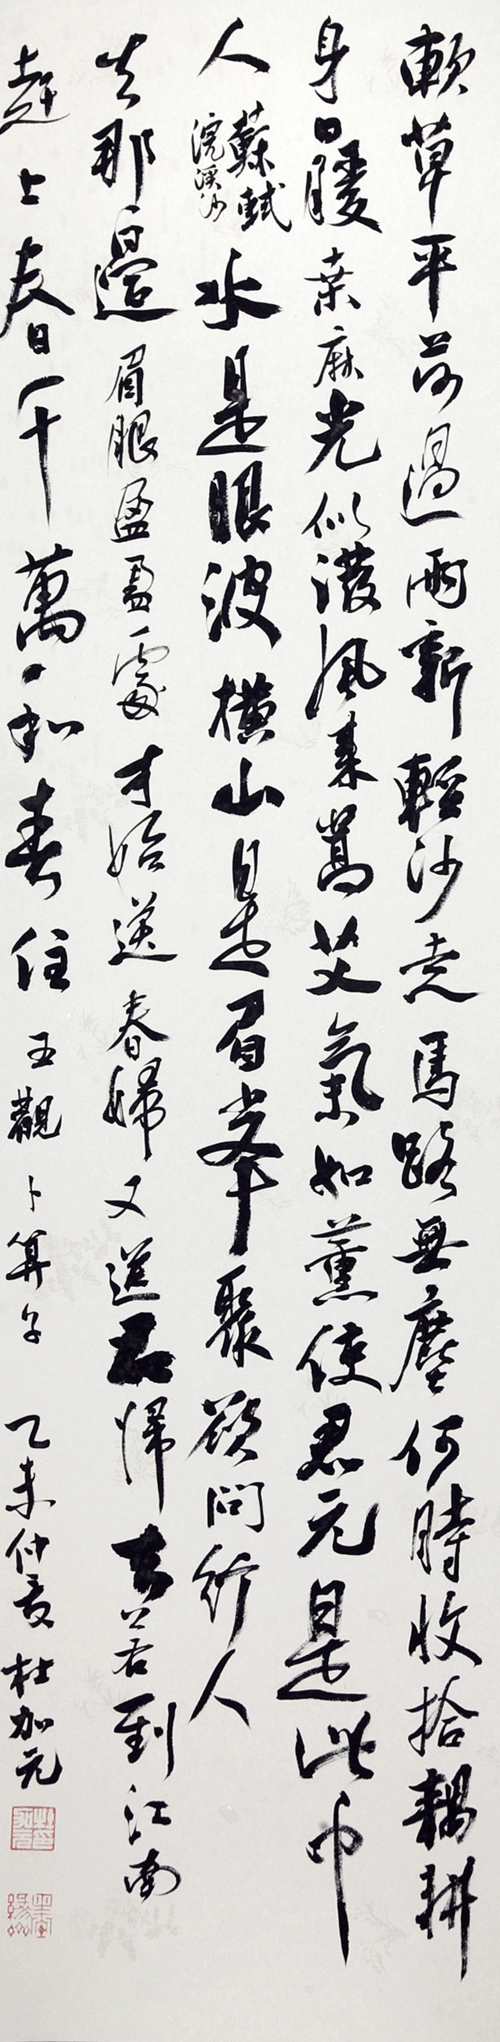 軟草平莎過雨新輕沙走馬路無塵何時收拾耦耕
身日暖桑麻光似潑風來蒿艾氣如薰使君元是此中
人蘇軾浣溪沙水是眼波橫山是眉峯聚欲問行人
去那邊眉眼盈盈處才始送春歸又送君歸去若到江南
趕上春千萬和春住王觀卜算子乙未仲夏杜加元